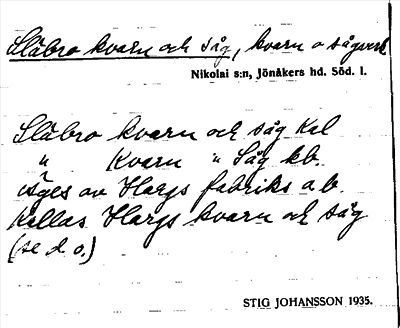 Släbro kvarn och såg, kvarn o sågverk
Nikolai s:n, Jönåkers hd. Söd. l.
Släbro kvarn och såg Kal
" Kvarn " Såg kb.
äges av Hargs fabriks a.b.
Kallas Hargs kvarn och såg
(se d.o.)
STIG JOHANSSON 1935.